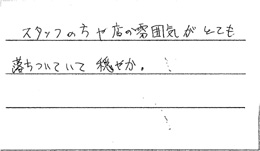 スタッフの方や店の雰囲気がとても
落ちついていて 穏やか。